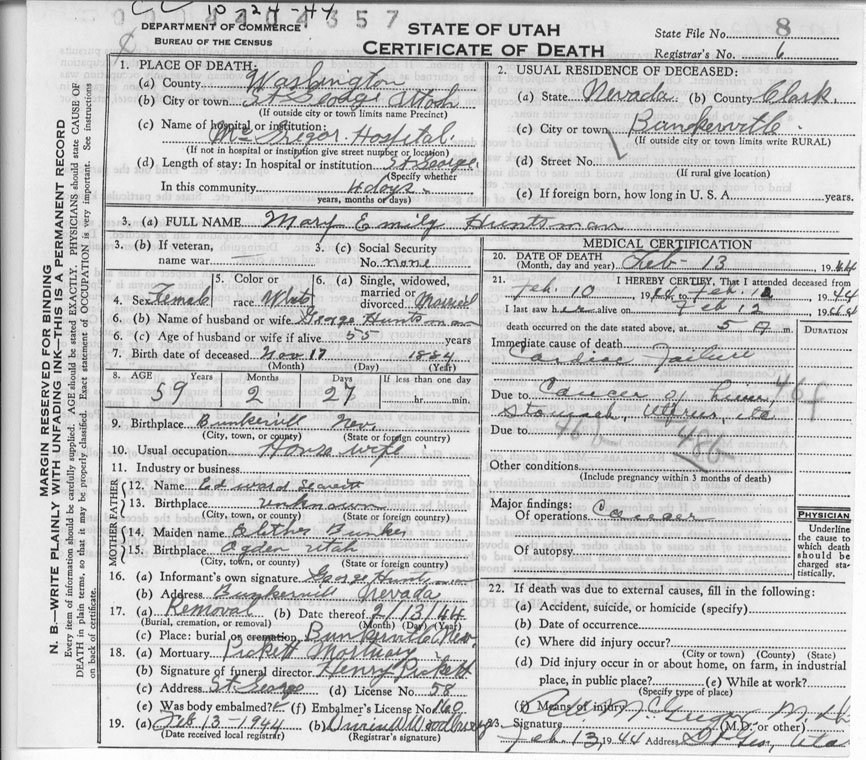 CC 10-24-44
DEPARTMENT OF COMMERCE
BUREAU OF THE CENSUS
STATE OF UTAH
CERTIFICATE OF DEATH
State File No. 8
Registrar's No. 6
MARGIN RESERVED FOR BINDING
N. B.—WRITE PLAINLY WITH UNFADING INK—THIS IS A PERMANENT RECORD
Every item of information should be carefully supplied. AGE should be stated EXACTLY. PHYSICIANS should state CAUSE OF
DEATH in plain terms, so that it may be properly classified. Exact statement of OCCUPATION is very important. See instructions
on back of certificate.
1. PLACE OF DEATH:
(a) County Washington
(b) City or town St George Utah
(If outside city or town limits name Precinct)
(c) Name of hospital or institution:
McGregor Hospital.
(If not in hospital or institution give street number or location)
(d) Length of stay: In hospital or institution St George
(Specify whether
In this community 4 days.
years, months or days)
2. USUAL RESIDENCE OF DECEASED:
(a) State Nevada (b) County Clark.
(c) City or town Bunkerville.
(If outside city or town limits write RURAL)
(d) Street No.
(If rural give location)
(e) If foreign born, how long in U. S. A. years.
3. (a) FULL NAME Mary Emily Huntsman
3. (b) If veteran,
name war
3. (c) Social Security
No. none
4. Sex Female
5. Color or
race White
6. (a) Single, widowed,
married or
divorced Married
6. (b) Name of husband or wife George Huntsman
6. (c) Age of husband or wife if alive 55 years
7. Birth date of deceased Nov 17 1884
(Month) (Day) (Year)
8. AGE Years Months Days If less than one day
59 2 27 hr. min.
9. Birthplace Bunkervill Nev.
(City, town, or county) (State or foreign country)
10. Usual occupation House wife
11. Industry or business
FATHER
12. Name Edward
13. Birthplace unknown
(City, town, or county) (State or foreign country)
MOTHER
14. Maiden name Bunker
15. Birthplace Ogden Utah
(City, town, or county) (State or foreign country)
16. (a) Informant's own signature George Huntsman
(b) Address Bunkervill Nevada
17. (a) Removal (b) Date thereof 2/13/44
(Burial, cremation, or removal) (Month) (Day) (Year)
(c) Place: burial or cremation Bunkerville Nev.
18. (a) Mortuary Pickett Mortuary
(b) Signature of funeral director Henry Pickett
(c) Address St George (d) License No. 58
(e) Was body embalmed? (f) Embalmer's License No. 160
19. (a) Feb 13-1944 (b)
(Date received local registrar) (Registrar's signature)
MEDICAL CERTIFICATION
20. DATE OF DEATH
(Month, day and year) Feb-13 1944
21. I HEREBY CERTIFY, That I attended deceased from
Feb. 10 1944 to Feb. 12 1944
I last saw her alive on Feb 12 1944
death occurred on the date stated above, at 5 A m.
DURATION
Immediate cause of death
Cardiac Failure
Due to Cancer of Liver
Stomach, Uterus, etc
46f
Due to
486
Other conditions
(Include pregnancy within 3 months of death)
Major findings:
Of operations Cancer
Of autopsy
PHYSICIAN
Underline
the cause to
which death
should be
charged sta-
tistically.
22. If death was due to external causes, fill in the following:
(a) Accident, suicide, or homicide (specify)
(b) Date of occurrence
(c) Where did injury occur?
(City or town) (County) (State)
(d) Did injury occur in or about home, on farm, in industrial
place, in public place? (e) While at work?
(Specify type of place)
(f) Means of injury
23. Signature McGregor M.D.
(M.D. or other)
Feb. 13, 1944 Address St Geo, Utah